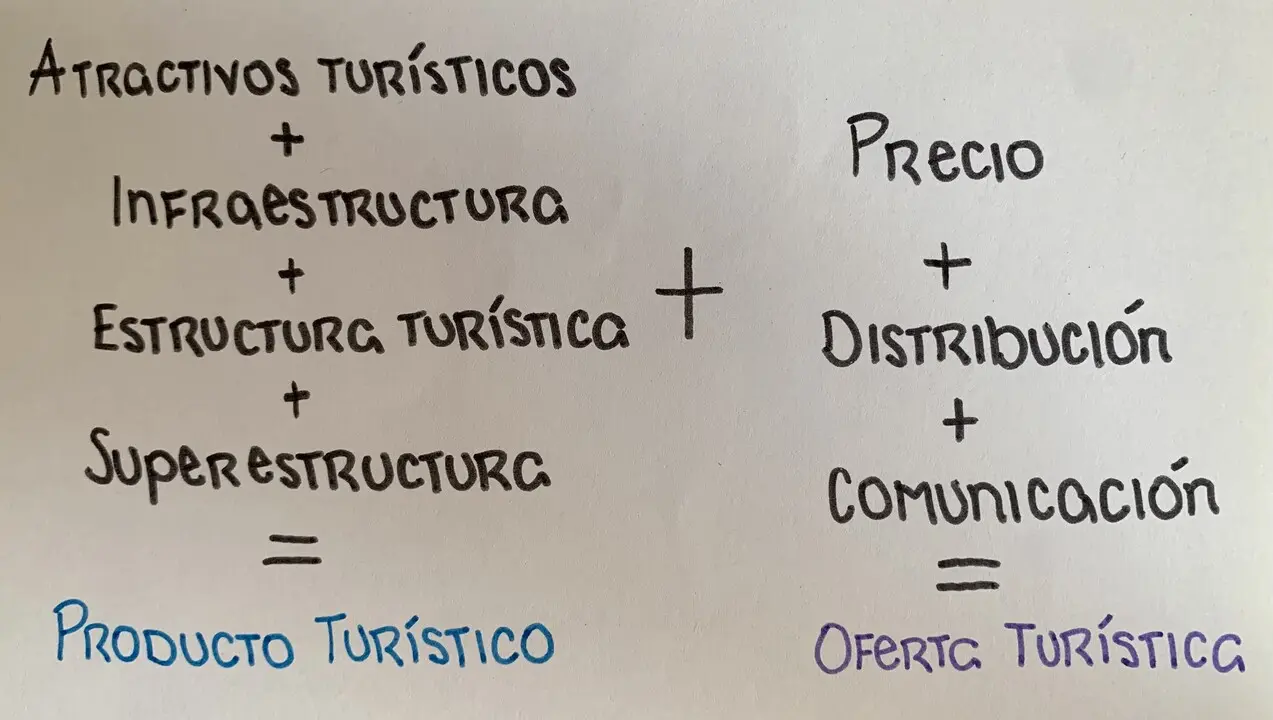 Atractivos turísticos
+
Infraestructura
+
Estructura turística
+
Superestructura
=
Producto Turístico
+
Precio
+
Distribución
+
Comunicación
=
Oferta Turística